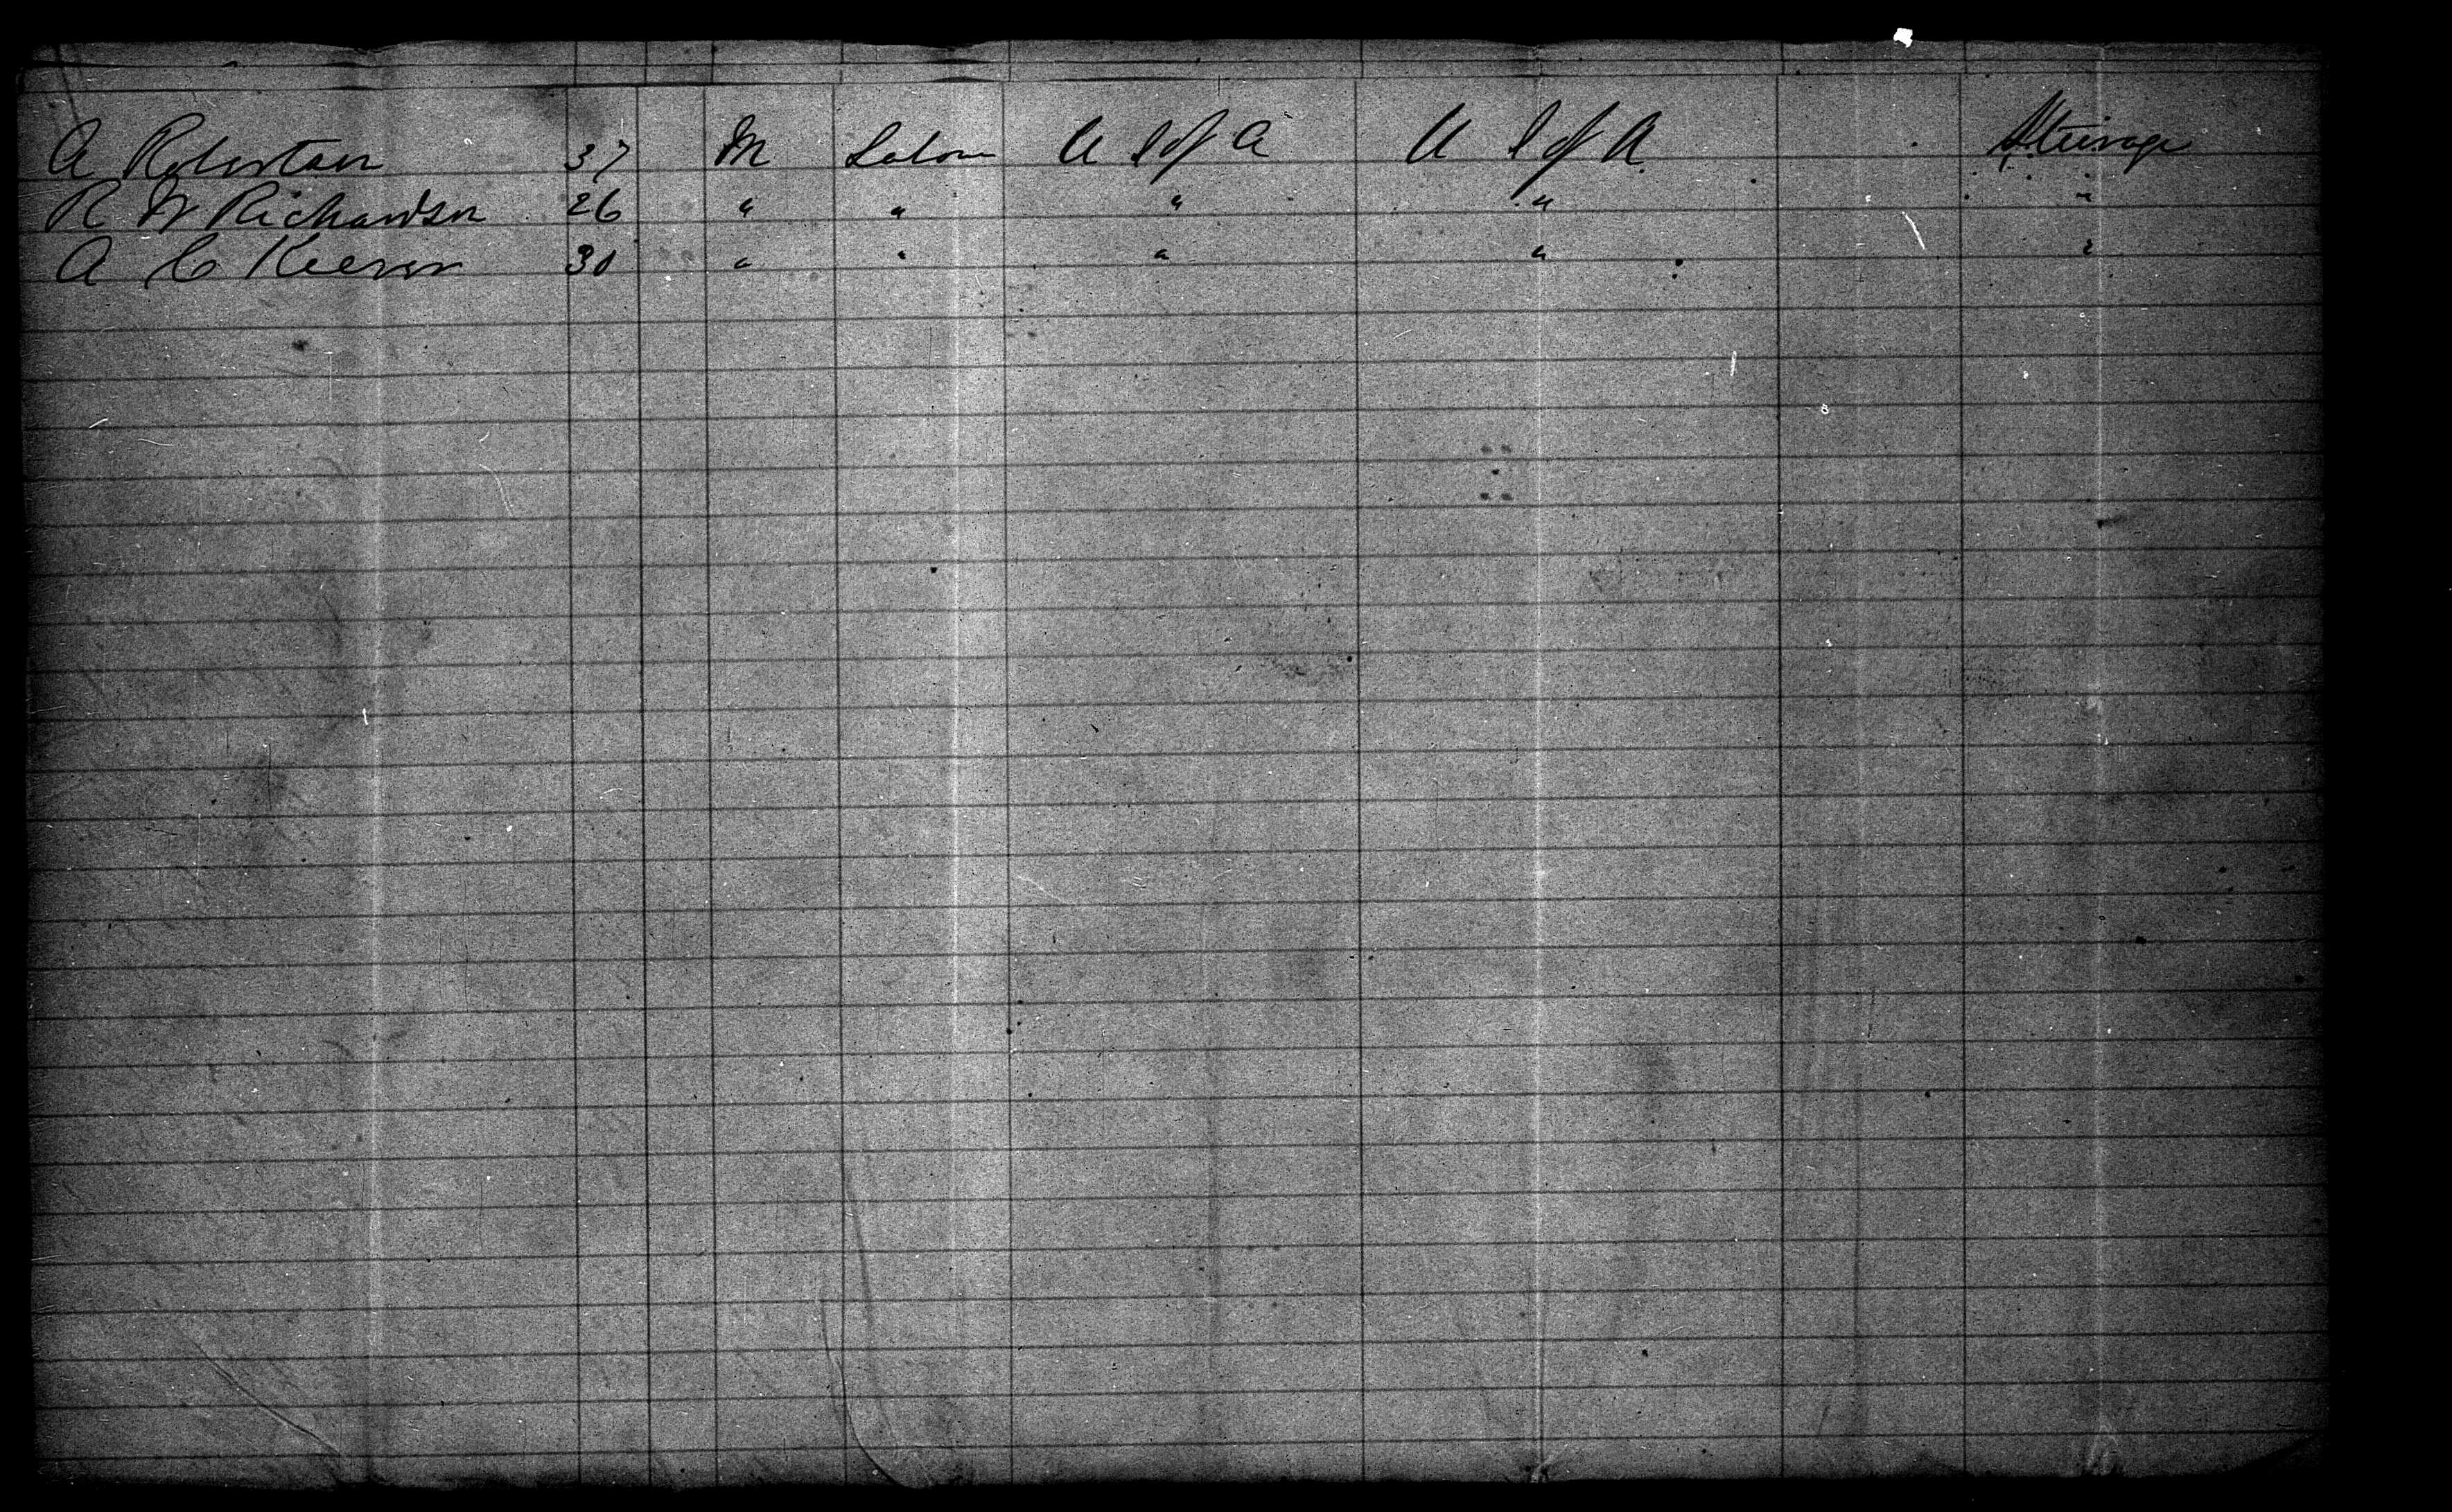 A Robertson 37 M Labor U S of A U S of A Steerage
R W Richardson 26 " " " " "
A C Keever 30 " " " " "